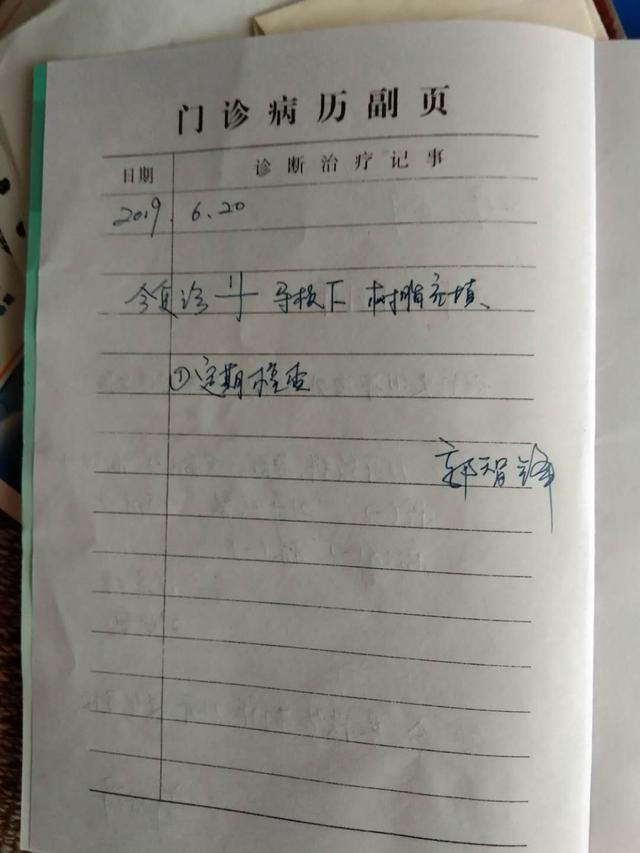 门诊病历副页
日期 诊断治疗记事
2019. 6.20
今复诊 1 导板下 树脂充填、
①定期检查
郭智锋